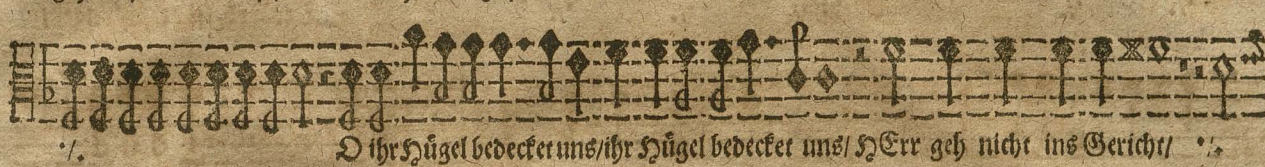 ·/. O ihr Hügel bedecket uns/ihr Hügel bedecket uns/ HErr geh nicht ins Gericht/ ·/.